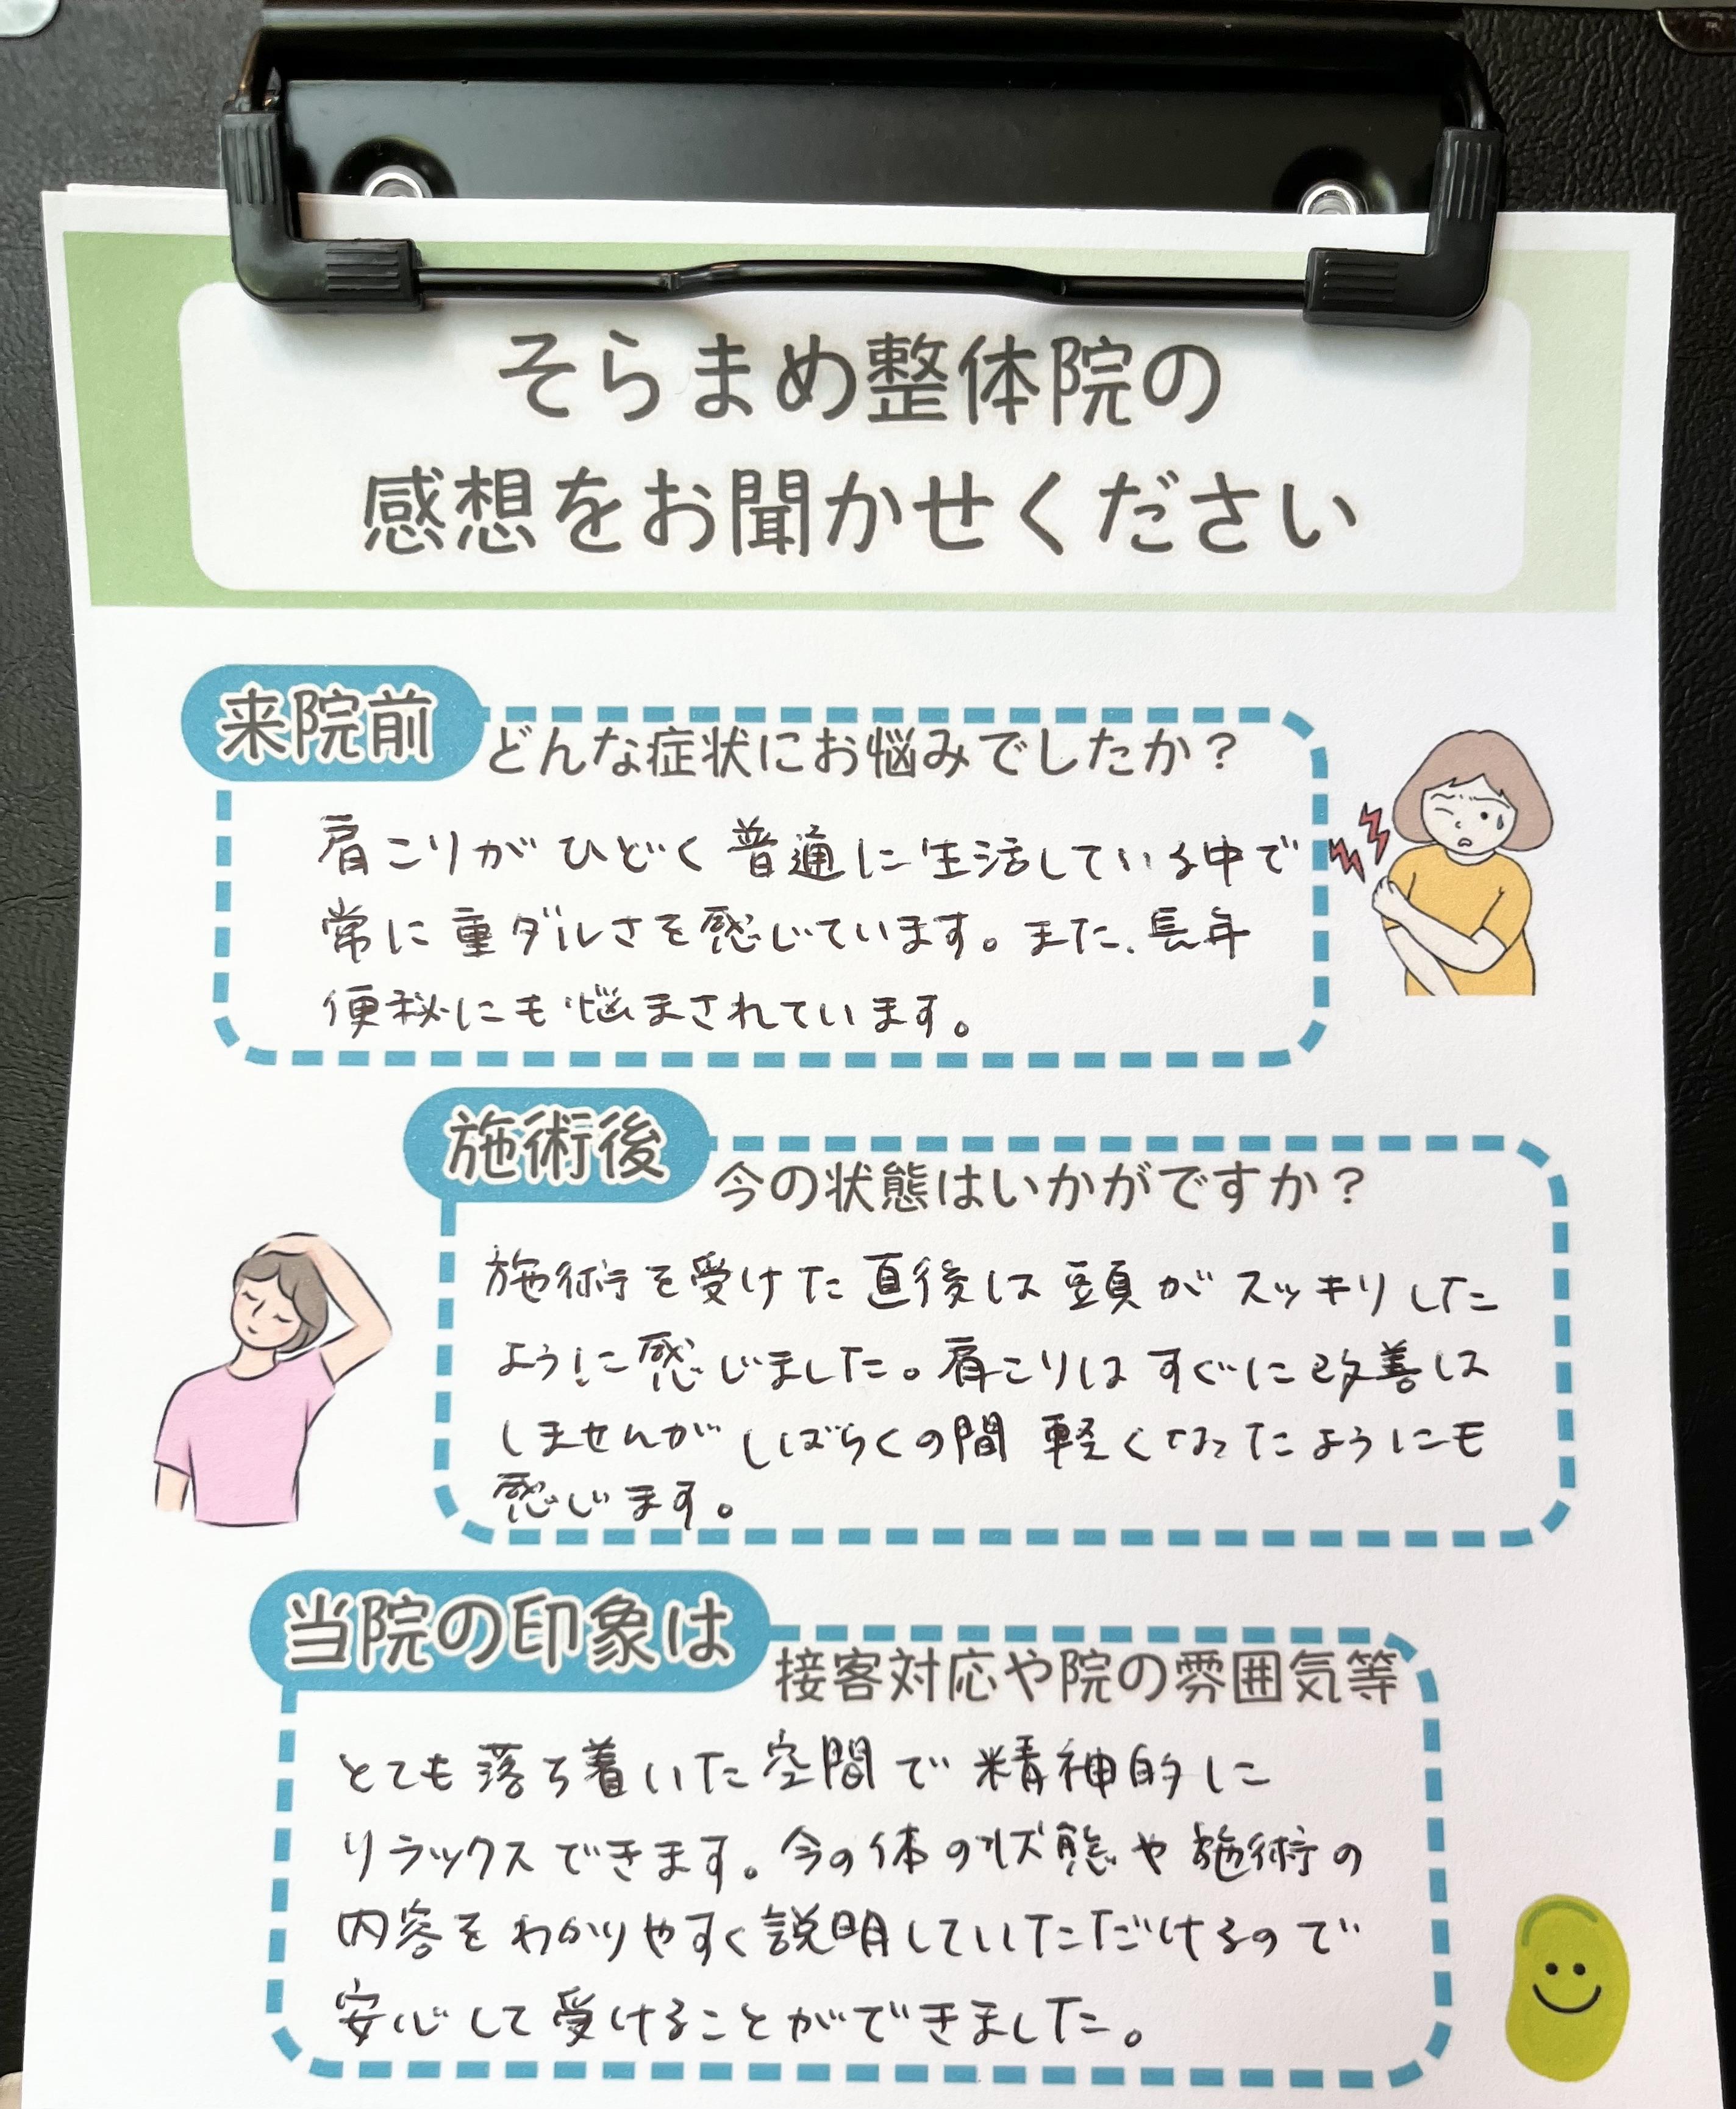 そらまめ整体院の
感想をお聞かせください
来院前
どんな症状にお悩みでしたか？
肩こりがひどく普通に生活している中で
常に重ダルさを感じています。また、長年
便秘にも悩まされています。
施術後
今の状態はいかがですか？
施術を受けた直後は頭がスッキリした
ように感じました。肩こりはすぐに改善は
しませんがしばらくの間軽くなったようにも
感じます。
当院の印象は
接客対応や院の雰囲気等
とても落ち着いた空間で精神的に
リラックスできます。今の体の状態や施術の
内容をわかりやすく説明していただけるので
安心して受けることができました。